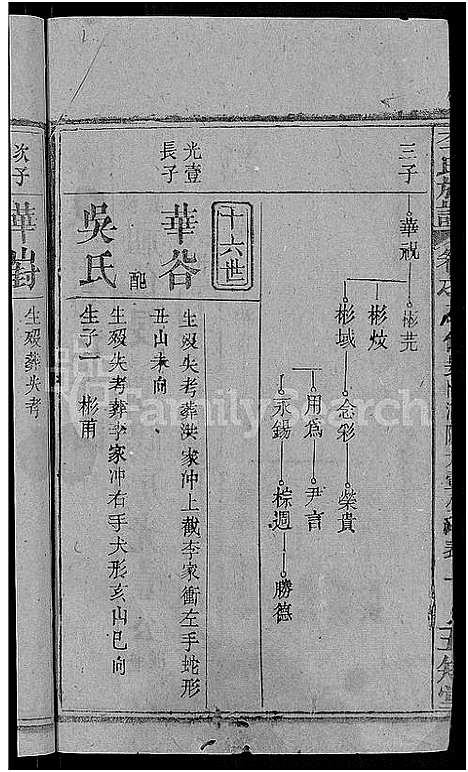 三子 華祝 彬芫
彬炆
彬域 念彩 榮貴
用爲 尹言
永錫 棕週 勝德
十六世
光壹長子
華谷
生歿失考葬洪家沖上截李家衝左手蛇形
丑山未向
配
吳氏
生歿失考葬李家沖右手犬形亥山巳向
生子一 彬甫
次子
生歿葬失考
FamilySearch